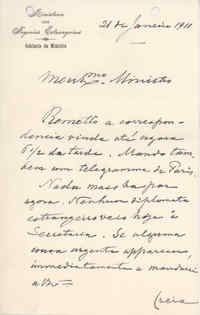 Ministerio
dos
Negocios Estrangeiros
Gabinete do Ministro
21 de Janeiro 1911
Meu Exmo Ministro
Remetto a correspon-
dencia vinda até agora
5 1/2 da tarde. Mando tam-
bem um telegramma de Paris.
Nada mais ha por
agora. Nenhum diplomata
estrangeiro veio hoje á
Secretaria. Se alguma
cousa urgente apparecer,
immediatamente a mandarei
a V.
Creia